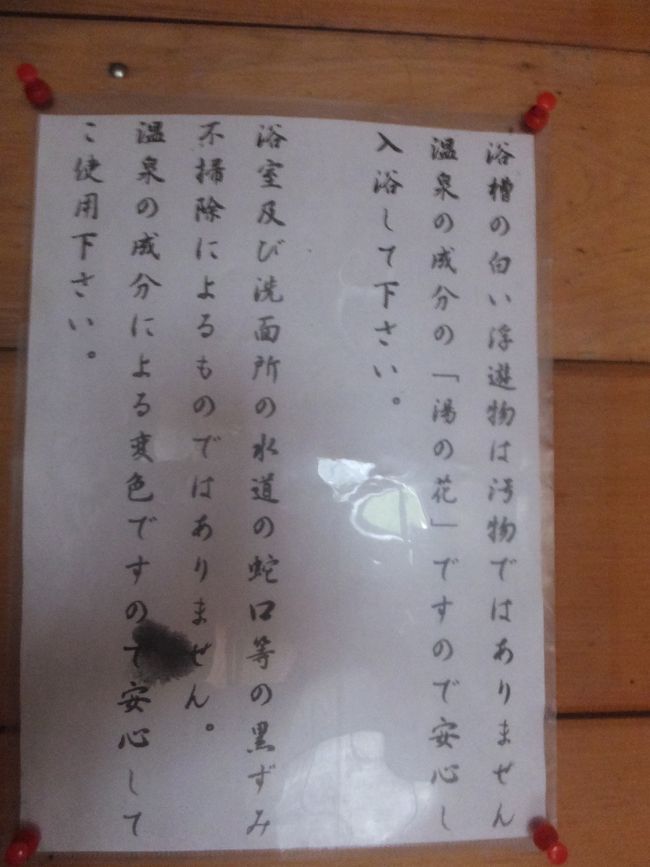 浴槽の白い浮遊物は汚物ではありません
温泉の成分の「湯の花」ですので安心し
入浴して下さい。
浴室及び洗面所の水道の蛇口等の黒ずみ
不掃除によるものではありません。
温泉の成分による変色ですので安心して
ご使用下さい。